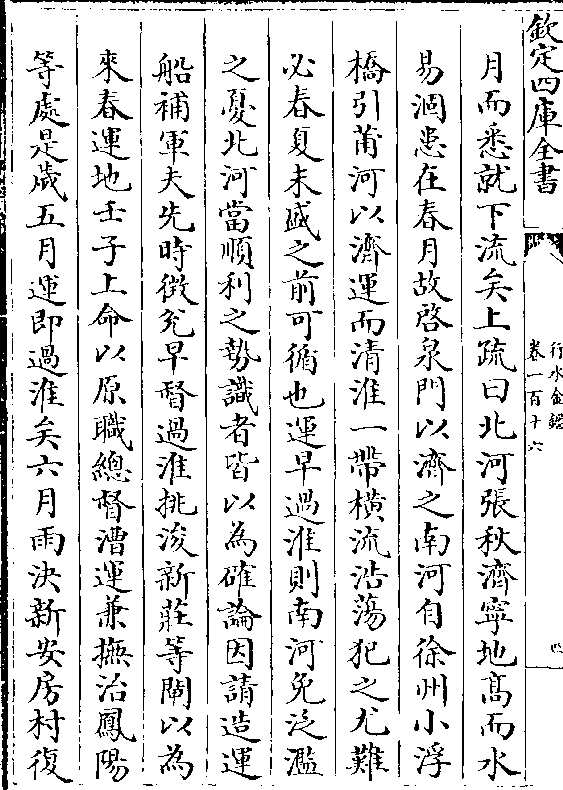 欽定四庫全書
行水金鑑
卷一百十六
四
月而悉就下流矣上疏曰北河張秋濟寧地髙而水
易涸患在春月故啓泉門以濟之南河自徐州小浮
橋引莆河以濟運而清淮一帶橫流浩蕩犯之尤難
必春夏未盛之前可循也運早過淮則南河免泛濫
之憂北河當順利之勢識者皆以為確論因請造運
船補軍夫先時徴兊早督過淮挑浚新莊等閘以為
來春運地壬子上命以原職總督漕運兼撫治鳳陽
等處是嵗五月運即過淮矣六月雨決新安房村復